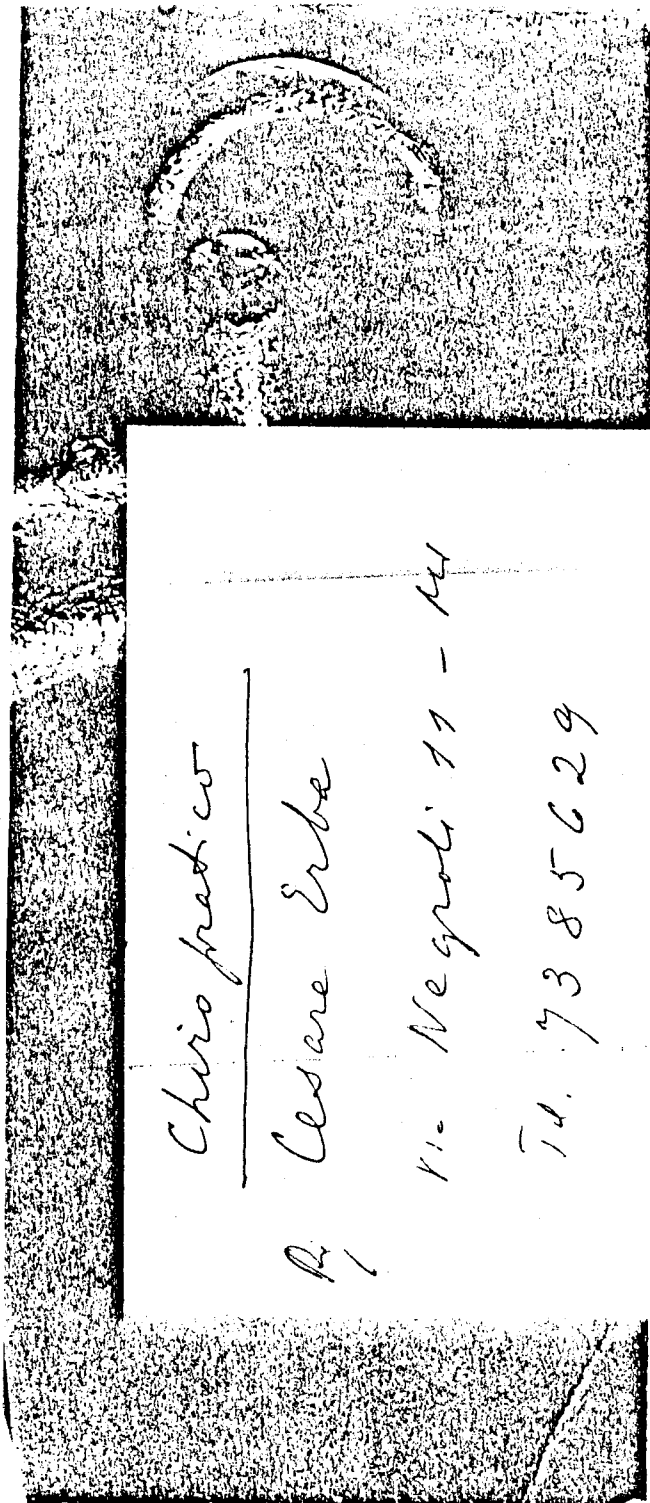 Chiropratico
Cesare Erba
Via Negroli 11 - MI
Tel. 7385629